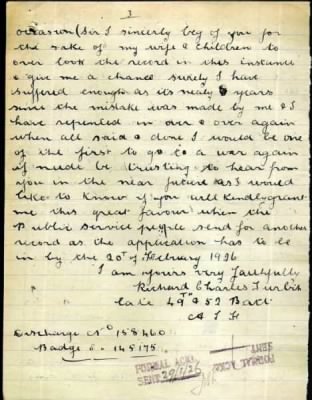 3
occasion (Sir I sincerely beg of you for
the sake of my wife & children to
over look the record in this instance
& give me a chance surely I have
suffered enough as its nealy 8 years
since the mistake was made by me & I
have repented in over & over again
when all said & done I would be one
of the first to go to a war again
if neede be trusting to hear from
you in the near future as I would
like to know if you will kendly grant
me this great favour when the
Public Service people send for another
record as the application has to be
in by the 20th of February 1926
I am yours very Faithfully
Richard Charles Turbit
late 49th & 52 Batt
A I F
Discharge No 158460
Badge " 145175
FORMAL ACKT
SENT 29/1/26
FORMAL ACKT
SENT